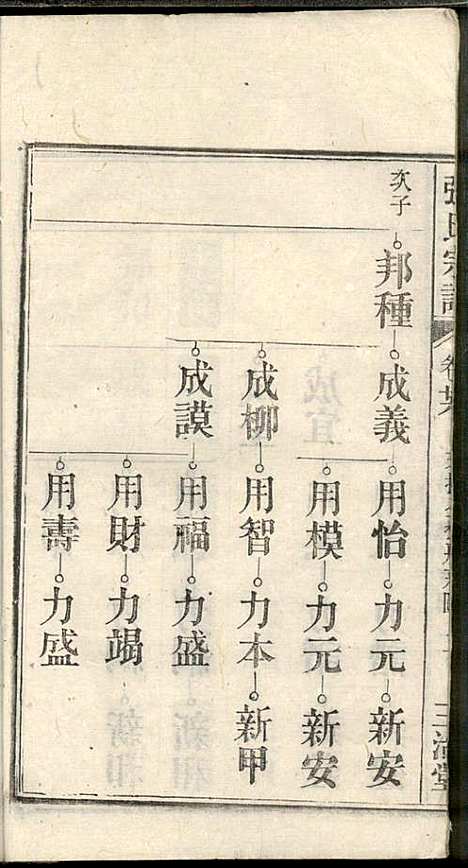 張氏宗譜
三治堂
次子
邦種 成義 用怡 力元 新安
用模 力元 新安
成柳 用智 力本 新甲
成謨 用福 力盛
用財 力竭
用壽 力盛